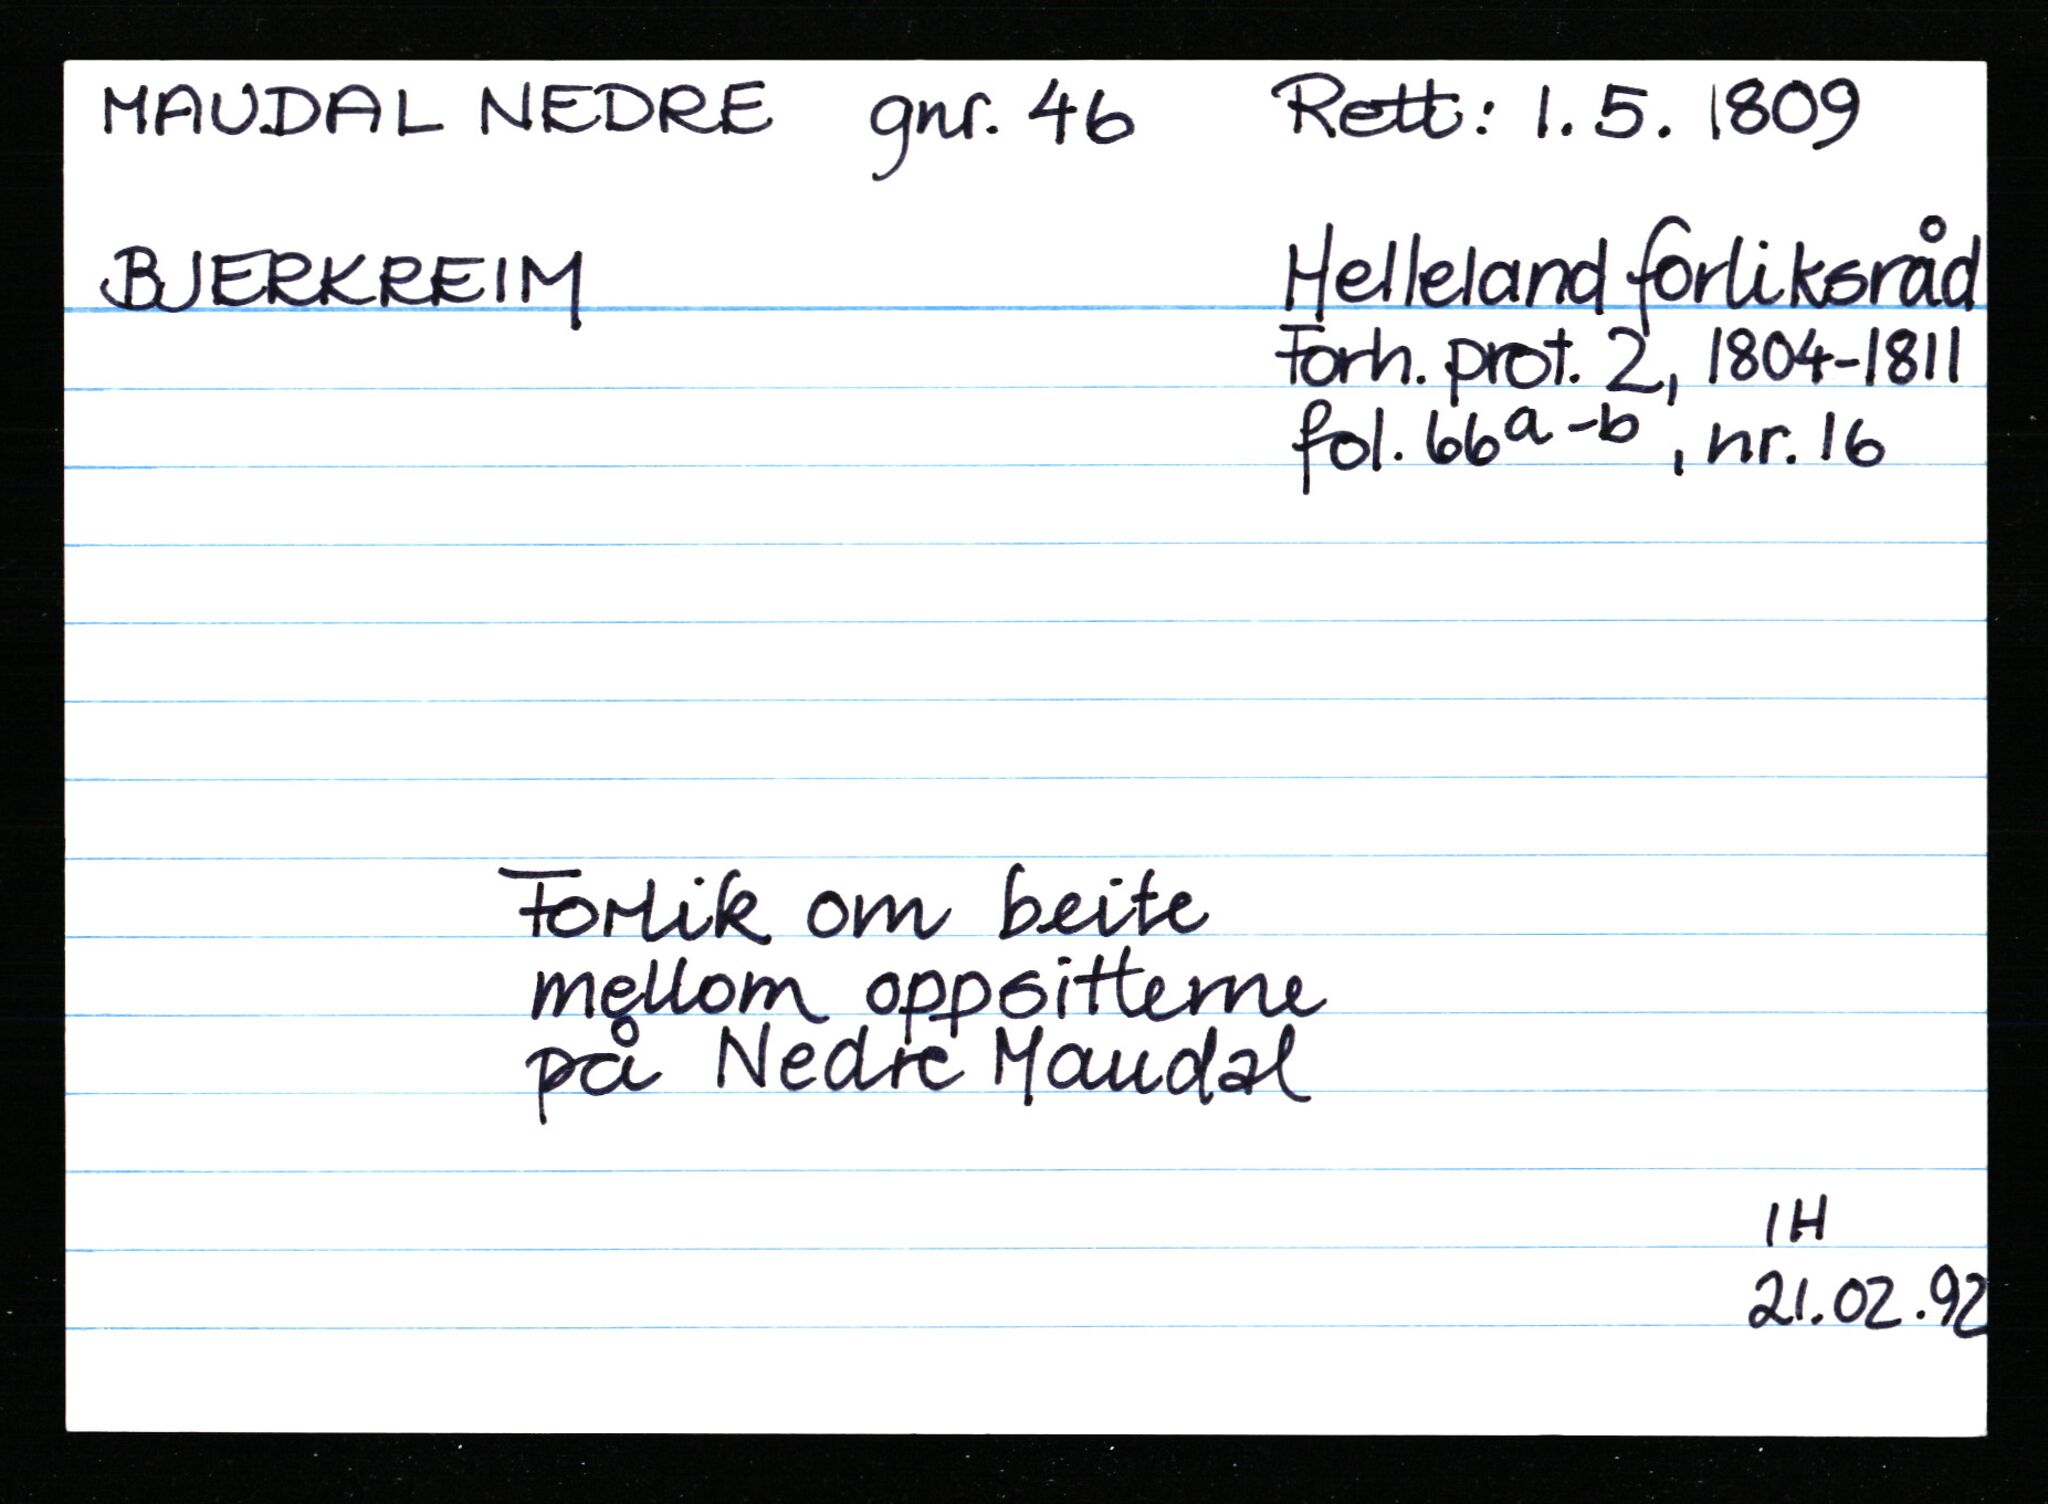 MAUDAL NEDRE gnr. 46 Rett: 1.5.1809
BJERKREIM Helleland forliksråd
Forh. prot. 2, 1804-1811
fol. 66a-b, nr. 16
Forlik om beite
mellom oppsitterne
på Nedre Maudal
IH
21.02.92